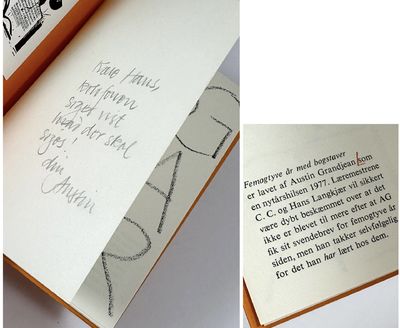 Kære Hans,
forfatteren
siger vist
hvad der skal
siges!
din
Austin
G
A
R
Femogtyve år med bogstaver
er lavet af Austin Grandjean som
en nytårshilsen 1977. Læremestrene
C. C. og Hans Langkjær vil sikkert
være dybt beskæmmet over at det
ikke er blevet til mere efter at AG
fik sit svendebrev for femogtyve år
siden, men han takker selvfølgelig
for det han har lært hos dem.